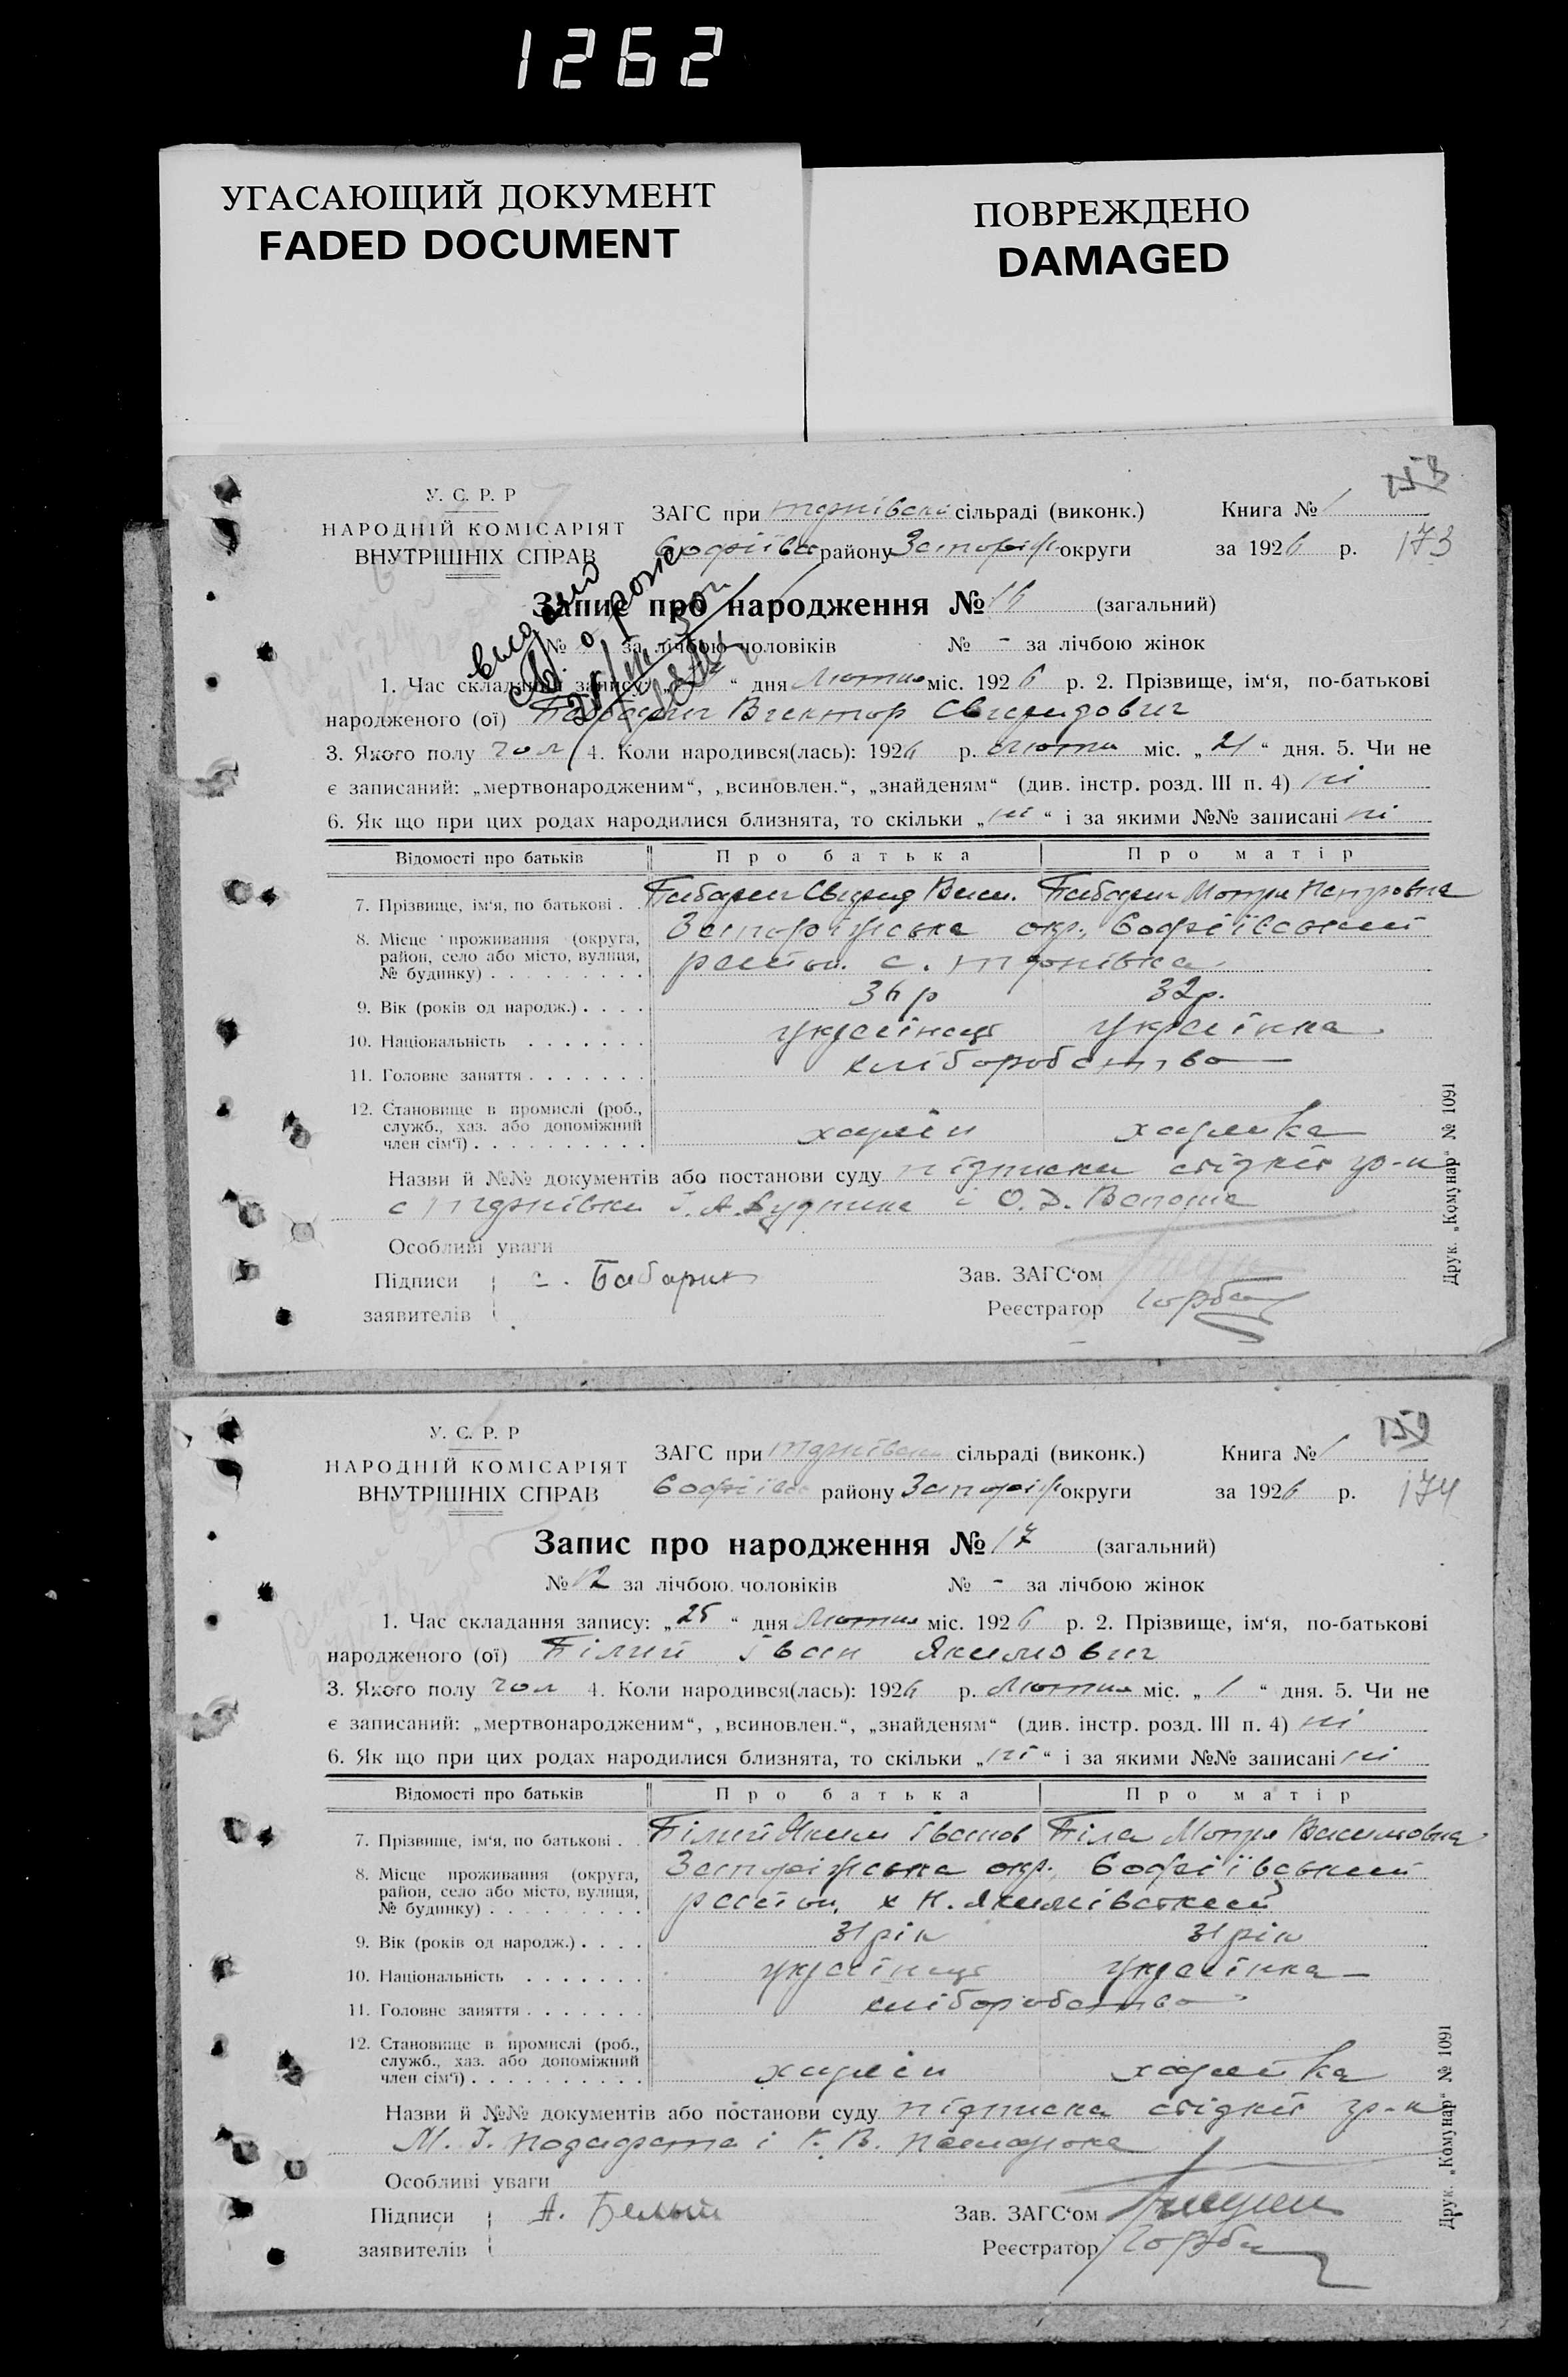 1262
УГАСАЮЩИЙ ДОКУМЕНТ
FADED DOCUMENT
ПОВРЕЖДЕНО
DAMAGED
158
У. С. Р. Р
НАРОДНІЙ КОМІСАРІЯТ
ВНУТРІШНІХ СПРАВ
ЗАГС при сільраді (виконк.) Книга № 1
Софіївс району Запоріж округи за 1926 р. 173
Запис про народження № 16 (загальний)
№ за лічбою чоловіків № - за лічбою жінок
1. Час складання запису: „ “ дня Лютого міс. 1926 р. 2. Прізвище, ім‘я, по-батькові
народженого (ої) Бабарик Виктор Свиридович
3. Якого полу чол 4. Коли народився(лась): 1926 р. Лютого міс. „21“ дня. 5. Чи не
є записаний: „мертвонародженим“, „всиновлен.“, „знайденям“ (див. інстр. розд. III п. 4) ні
6. Як що при цих родах народилися близнята, то скільки „ні“ і за якими №№ записані ні
Відомості про батьків Про батька Про матір
7. Прізвище, ім‘я, по батькові . . Бабарик Свирид Васи. Бабарик Мотря Петровна
8. Місце проживання (округа, район, село або місто, вулиця, № будинку) . . . . . . . . . Запоріжська окр., Софіївський
район. с.
9. Вік (років од народж.) . . . . 36 р 32 р.
10. Національність . . . . . . . українець українка
11. Головне заняття . . . . . . . хліборобство
12. Становище в промислі (роб., служб., хаз. або допоміжний член сім‘ї) . . . . . . . . . . хазяїн хазяйка
Назви й №№ документів або постанови суду підписка свідків гр-н
Особливі уваги
Підписи с. Бабарик Зав. ЗАГС‘ом
заявителів Реєстратор Горба
Друк. „Комунар“ № 1091
159
У. С. Р. Р
НАРОДНІЙ КОМІСАРІЯТ
ВНУТРІШНІХ СПРАВ
ЗАГС при сільраді (виконк.) Книга № 1
Софіївс району Запоріж округи за 1926 р. 174
Запис про народження № 17 (загальний)
№ 12 за лічбою чоловіків № - за лічбою жінок
1. Час складання запису: „25“ дня Лютого міс. 1926 р. 2. Прізвище, ім‘я, по-батькові
народженого (ої) Білий Іван Якимович
3. Якого полу чол 4. Коли народився(лась): 1926 р. Лютого міс. „1“ дня. 5. Чи не
є записаний: „мертвонародженим“, „всиновлен.“, „знайденям“ (див. інстр. розд. III п. 4) ні
6. Як що при цих родах народилися близнята, то скільки „ні“ і за якими №№ записані ні
Відомості про батьків Про батька Про матір
7. Прізвище, ім‘я, по батькові . . Білий Яким Іванов Біла Мотря Василовна
8. Місце проживання (округа, район, село або місто, вулиця, № будинку) . . . . . . . . . Запоріжська окр., Софіївський
район, х Н. Якимівський
9. Вік (років од народж.) . . . . 31 рік 31 рік
10. Національність . . . . . . . українець українка
11. Головне заняття . . . . . . . хліборобство
12. Становище в промислі (роб., служб., хаз. або допоміжний член сім‘ї) . . . . . . . . . . хазяїн хазяйка
Назви й №№ документів або постанови суду підписка свідків гр-н
Особливі уваги
Підписи А. Белый Зав. ЗАГС‘ом
заявителів Реєстратор Горба
Друк. „Комунар“ № 1091